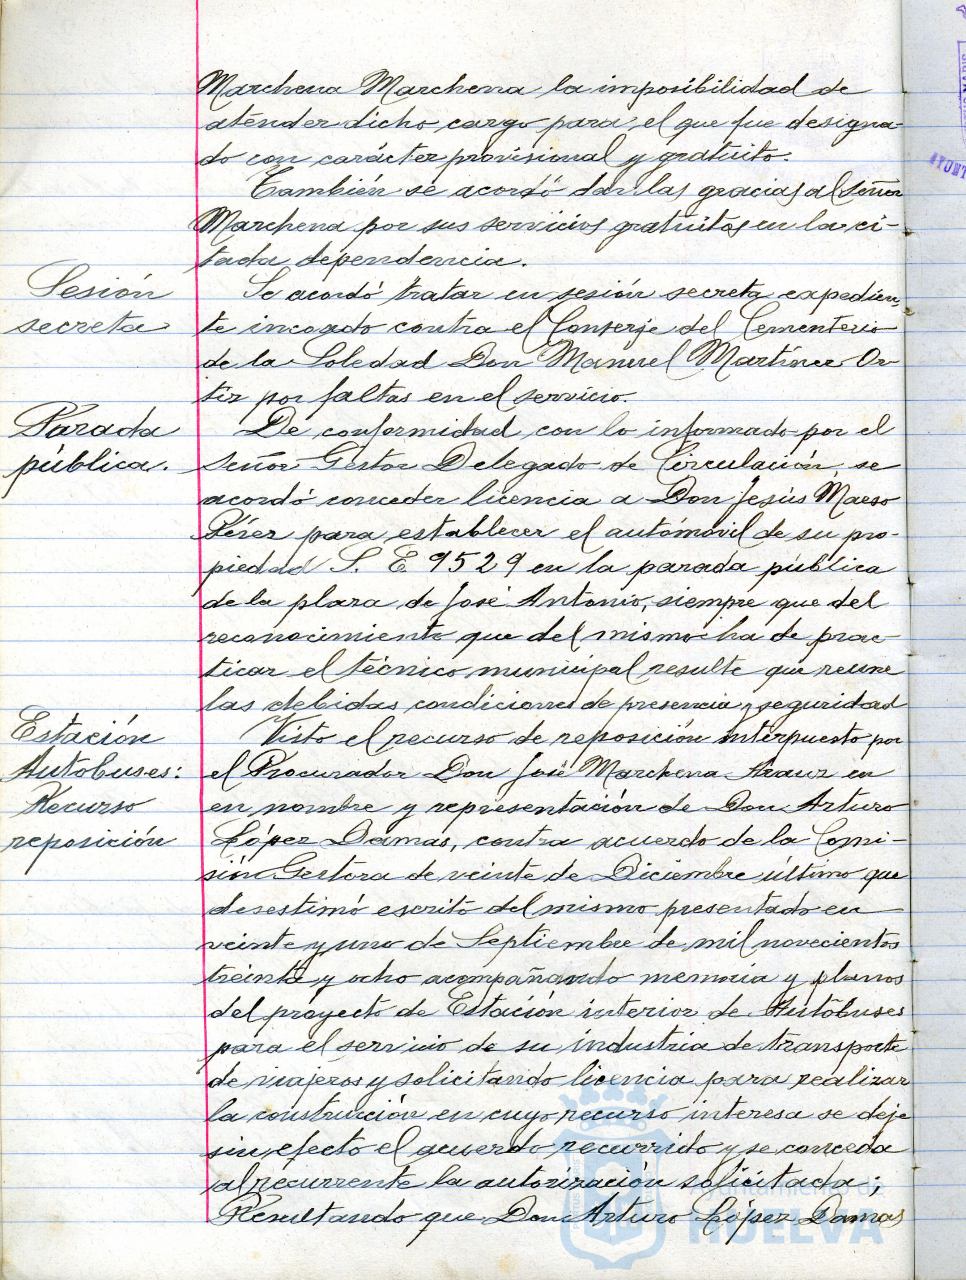 Marchena Marchena la imposibilidad de
atender dicho cargo para el que fue designa-
do con carácter provisional y gratuito.
También se acordó dar las gracias al Señor
Marchena por sus servicios gratuitos en la ci-
tada dependencia.
Sesión
secreta
Se acordó tratar en sesión secreta expedien-
te incoado contra el Conserje del Cementerio
de la Soledad Don Manuel Martínez Or-
tiz por faltas en el servicio.
Parada
pública.
De conformidad con lo informado por el
Señor Gestor Delegado de Circulación se
acordó conceder licencia a Don Jesús Maeso
Pérez para establecer el automóvil de su pro-
piedad S. E 9529 en la parada pública
de la plaza de José Antonio, siempre que del
reconocimiento que del mismo ha de prac-
ticar el técnico municipal resulte que reune
las debidas condiciones de presencia y seguridad
Estación
Autobuses:
Recurso
reposición
Visto el recurso de reposición interpuesto por
el Procurador Don José Marchena Arauz en
en nombre y representación de Don Arturo
López Damas, contra acuerdo de la Comi-
sión Gestora de veinte de Diciembre último que
desestimó escrito del mismo presentado en
veinte y uno de Septiembre de mil novecientos
treinta y ocho acompañando memoria y planos
del proyecto de Estación interior de Autobuses
para el servicio de su industria de transporte
de viajeros y solicitando licencia para realizar
la construcción en cuyo recurso interesa se deje
sin efecto el acuerdo recurrido y se conceda
al recurrente la autorización solicitada;
Resultando que Don Arturo López Damas
Ayuntamiento de
HUELVA